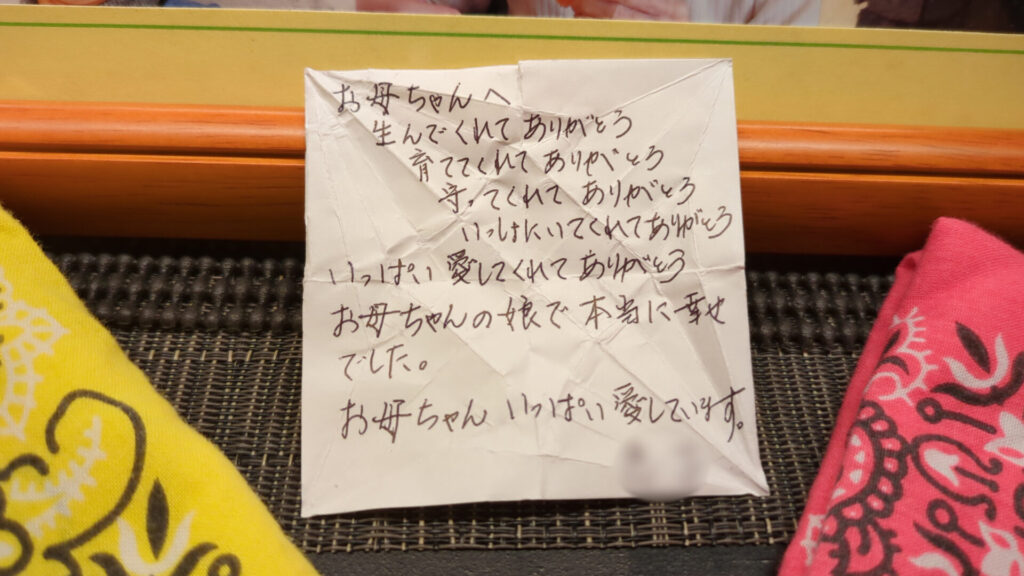 お母ちゃんへ
生んでくれてありがとう
育ててくれてありがとう
守ってくれてありがとう
いっしょにいてくれてありがとう
いっぱい愛してくれてありがとう
お母ちゃんの娘で本当に幸せ
でした。
お母ちゃん いっぱい愛しています。